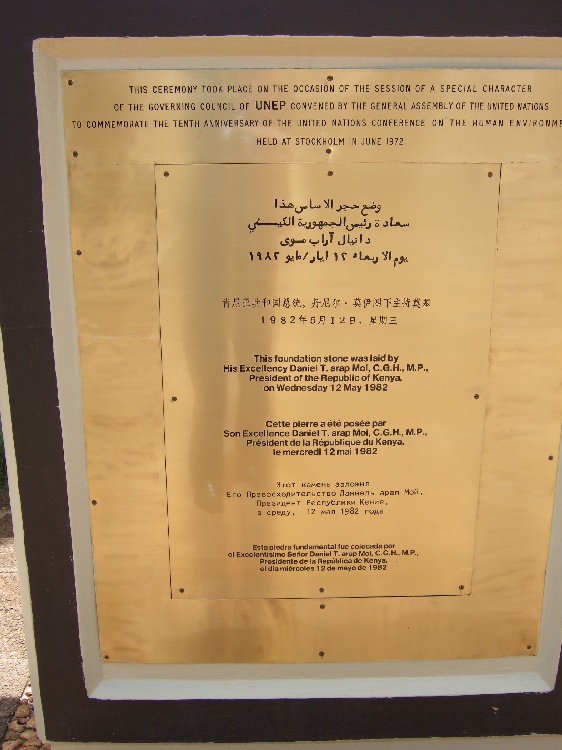 THIS CEREMONY TOOK PLACE ON THE OCCASION OF THE SESSION OF A SPECIAL CHARACTER
OF THE GOVERNING COUNCIL OF UNEP CONVENED BY THE GENERAL ASSEMBLY OF THE UNITED NATIONS
TO COMMEMORATE THE TENTH ANNIVERSARY OF THE UNITED NATIONS CONFERENCE ON THE HUMAN ENVIRONME
HELD AT STOCKHOLM IN JUNE 1972
وضع حجر الاساس هذا
سعادة رئيس الجمهورية الكيني
دانيال آراب موى
يوم الاربعاء ١٢ ايار/مايو ١٩٨٢
肯尼亚共和国总统，丹尼尔·莫伊阁下主持奠基
1982年5月12日，星期三
This foundation stone was laid by
His Excellency Daniel T. arap Moi, C.G.H., M.P.,
President of the Republic of Kenya,
on Wednesday 12 May 1982
Cette pierre a été posée par
Son Excellence Daniel T. arap Moi, C.G.H., M.P.,
Président de la République du Kenya,
le mercredi 12 mai 1982
Этот камень заложил
Его Превосходительство Даниель арап Мой,
Президент Республики Кения,
в среду, 12 мая 1982 года
Esta piedra fundamental fue colocada por
el Excelentísimo Señor Daniel T. arap Moi, C.G.H., M.P.,
Presidente de la República de Kenya,
el día miércoles 12 de mayo de 1982